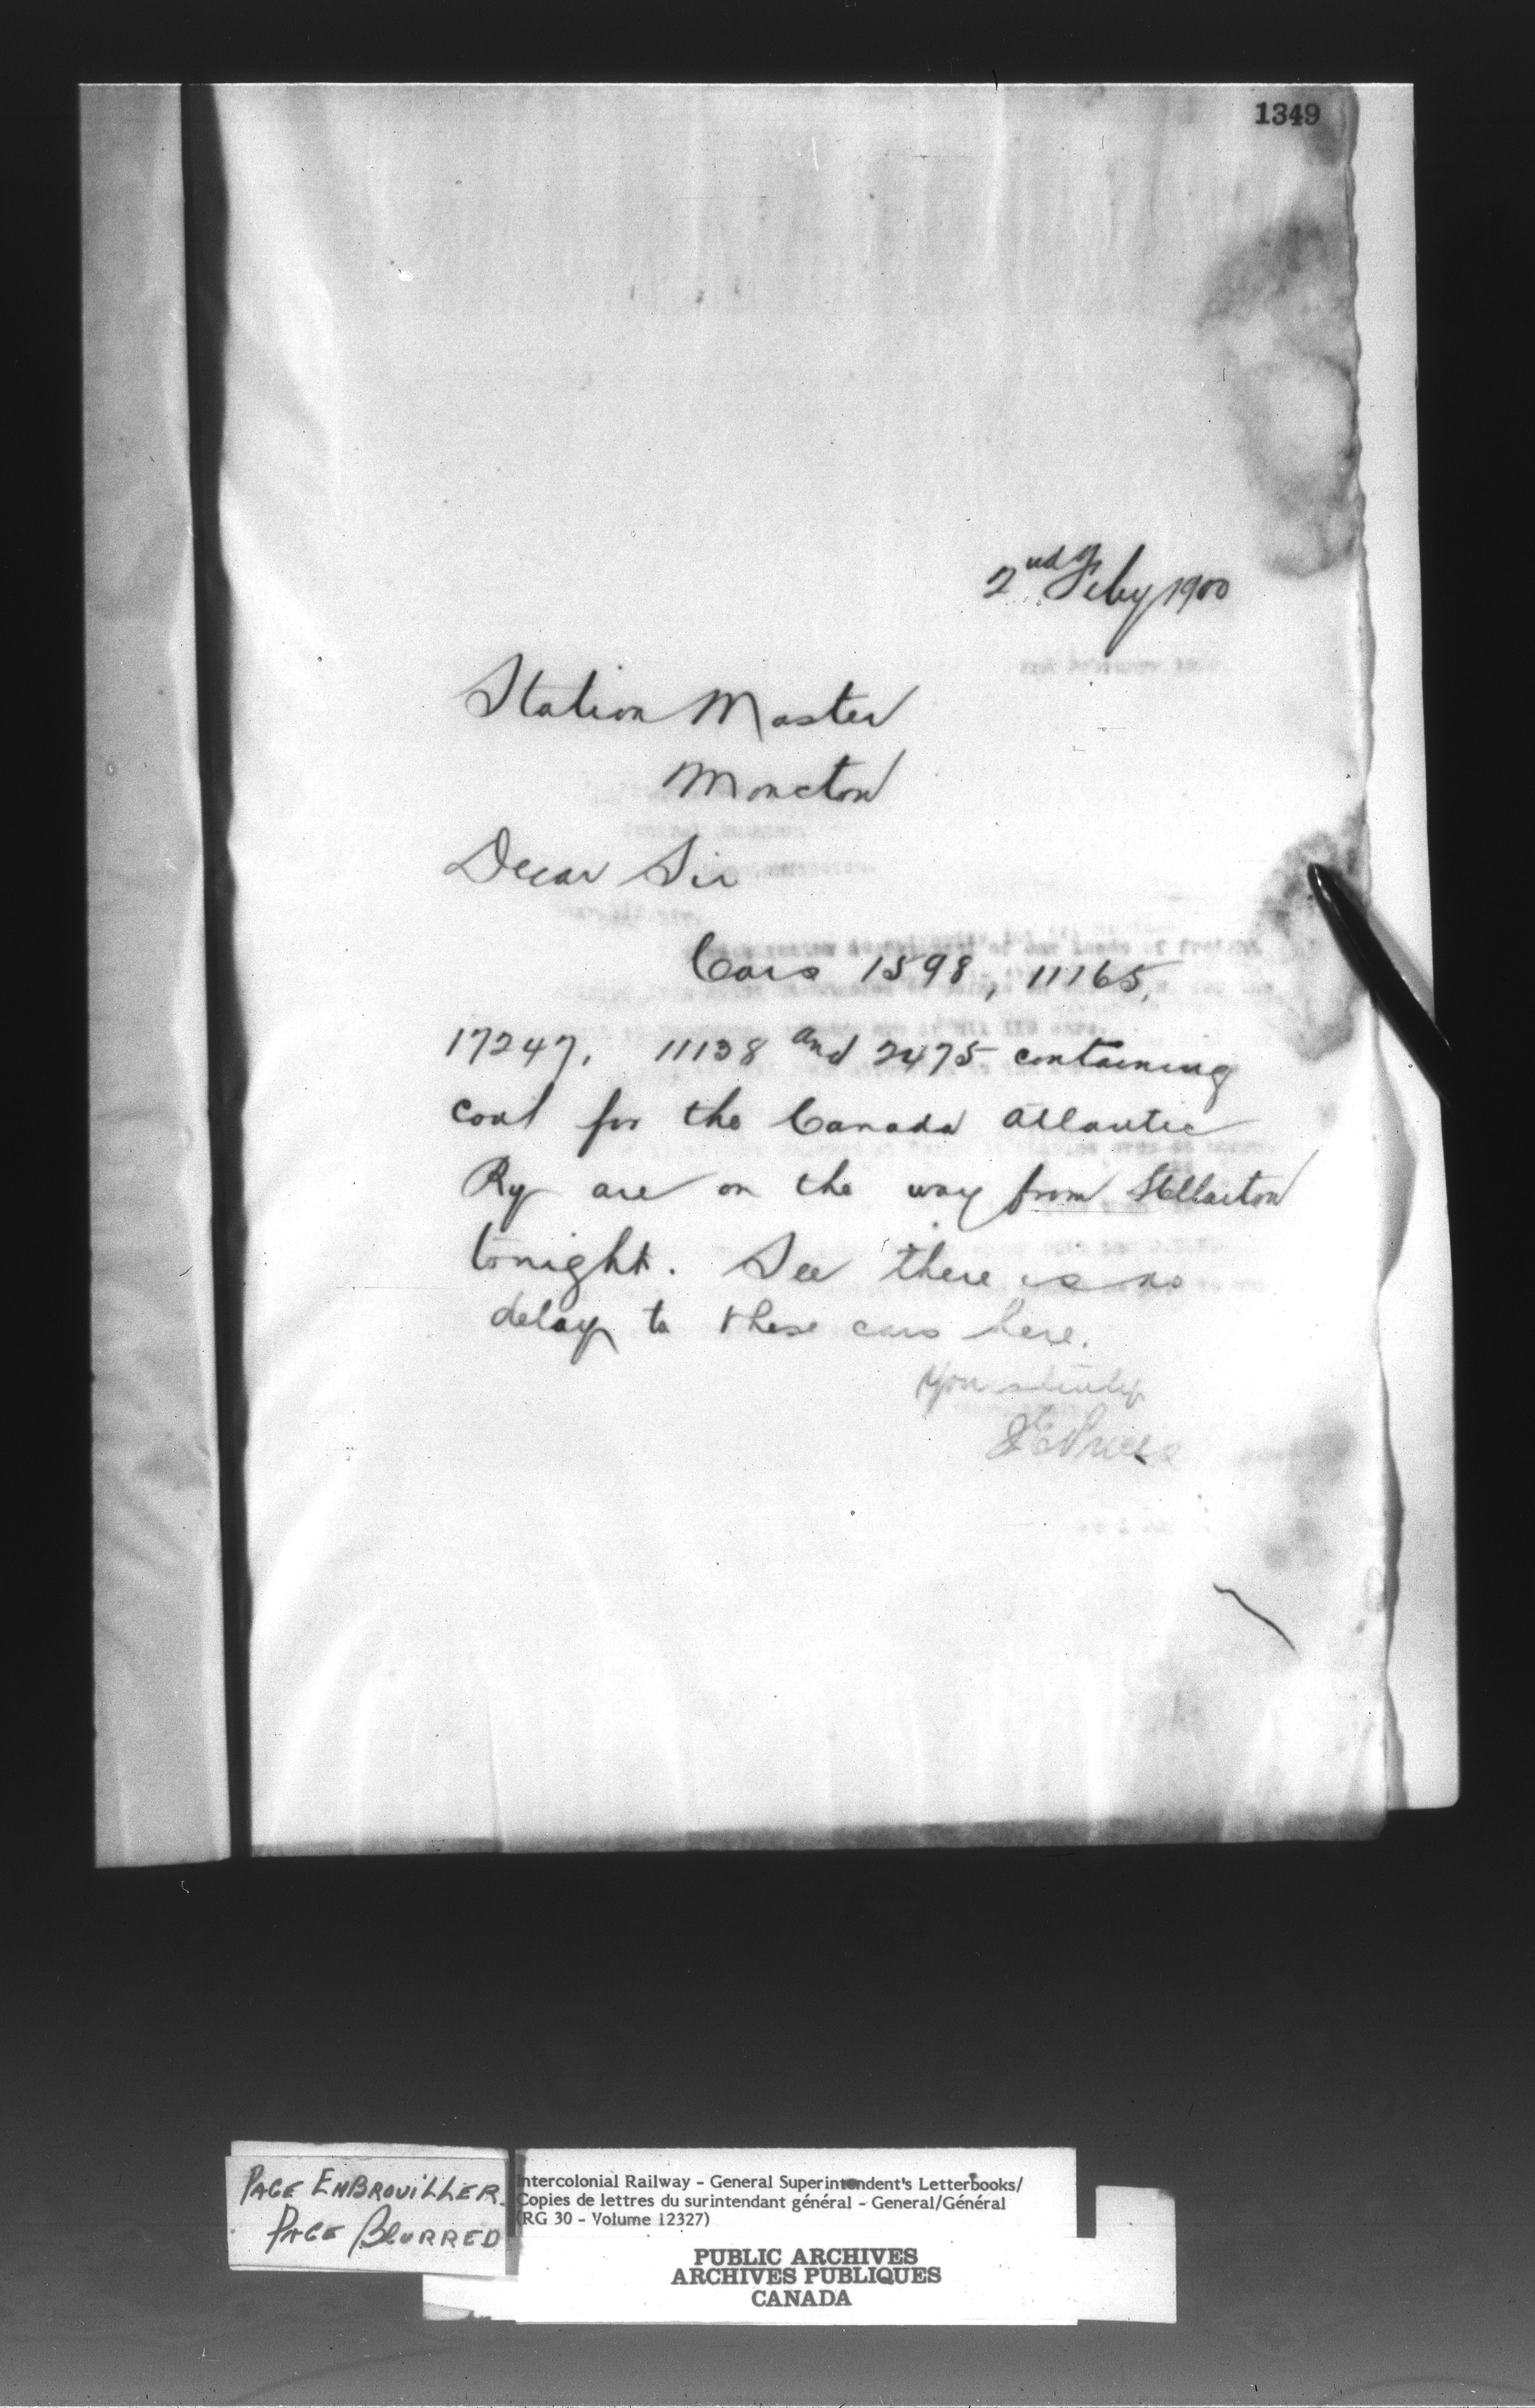 1349
2nd Feby 1900
Station Master
Moncton
Dear Sir
Cars 1598, 11165,
17247, 11138 and 2475 containing
coal for the Canada Atlantic
Ry are on the way from Stellarton
tonight. See there is no
delay to these cars here.
Yours truly
J E Price
PAGE EMBROUILLER.
PAGE BLURRED
Intercolonial Railway - General Superintendent's Letterbooks/
Copies de lettres du surintendant général - General/Général
(RG 30 - Volume 12327)
PUBLIC ARCHIVES
ARCHIVES PUBLIQUES
CANADA